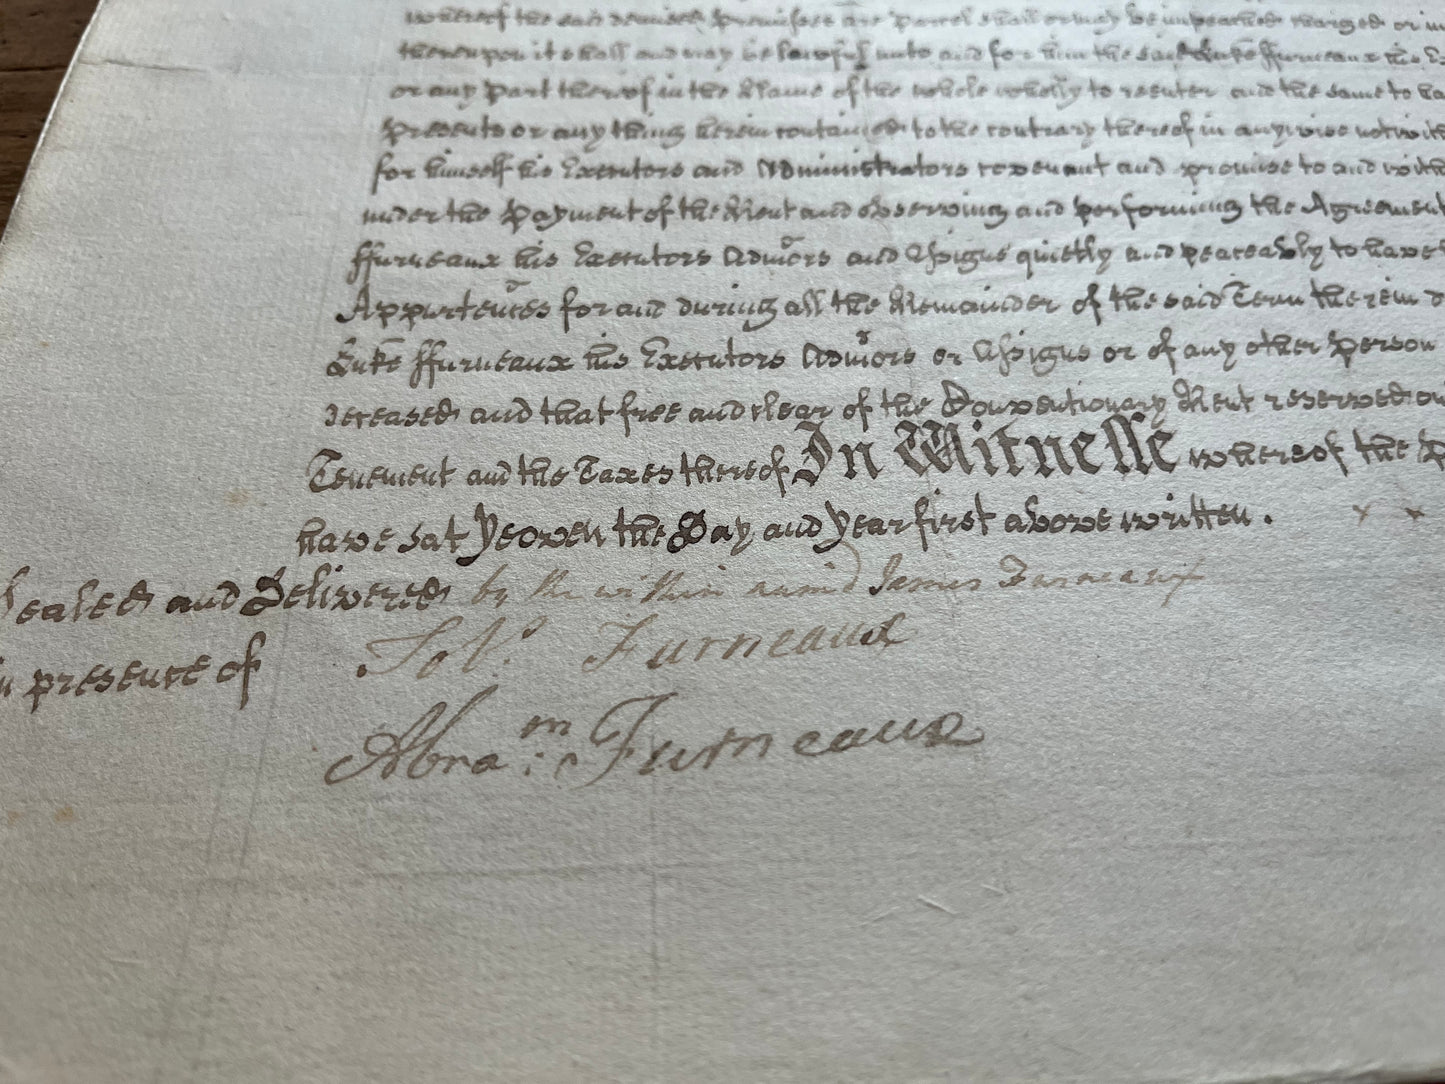 whereof the said demised premisses are parcel shall or may be impeached charged or in
thereupon it shall and may be lawful unto and for him the said Luke ffurneaux his E
or any Part thereof in the Name of the whole wholly to reenter and the same to ha
presents or any thing herein contained to the contrary thereof in anywise notwith
for himself his Executors and Administrators covenant and promise to and with
under the payment of the Rent and observing and performing the Agreement
ffurneaux his Executors Admors and Assigns quietly and peaceably to have
Appurtences for and during all the Remainder of the said Term therein
Luke ffurneaux his Executors Admors or Assigns or of any other Person
deceased and that free and clear of the Conventionary Rent reserved
Tenement and the Taxes thereof In Witnesse whereof the P
have sat Yeoven the Day and Year first above written .
Sealed and Delivered by the within named James Furneaux
in presence of
Furneaux
Abram : Furneaux